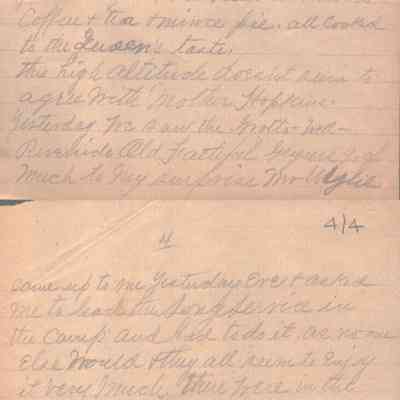 Coffee & tea & mince pie. all Cooked
to the Queen's taste.
this high altitude doesnt seem to
agree With Mother Hopkins.
Yesterday We saw the Grotto. and
Riverside Old Faithful Geyser
Much to my surprise Mr Wylie
4/4
4
came up to me Yesterday Eve & asked
me to lead the song service in
the Camp and had to do it. as no one
Else Would & they all seem to Enjoy
it Very Much. there Were in the